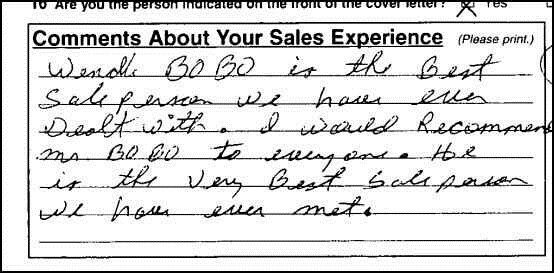 10 Are you the person indicated on the front of the cover letter? Yes
Comments About Your Sales Experience (Please print.)
Wendle BOBO is the Best
Saleperson we have ever
Dealt with. I would Recommend
mr BOBO to everyone. He
is the Very Best Saleperson
we have ever met.